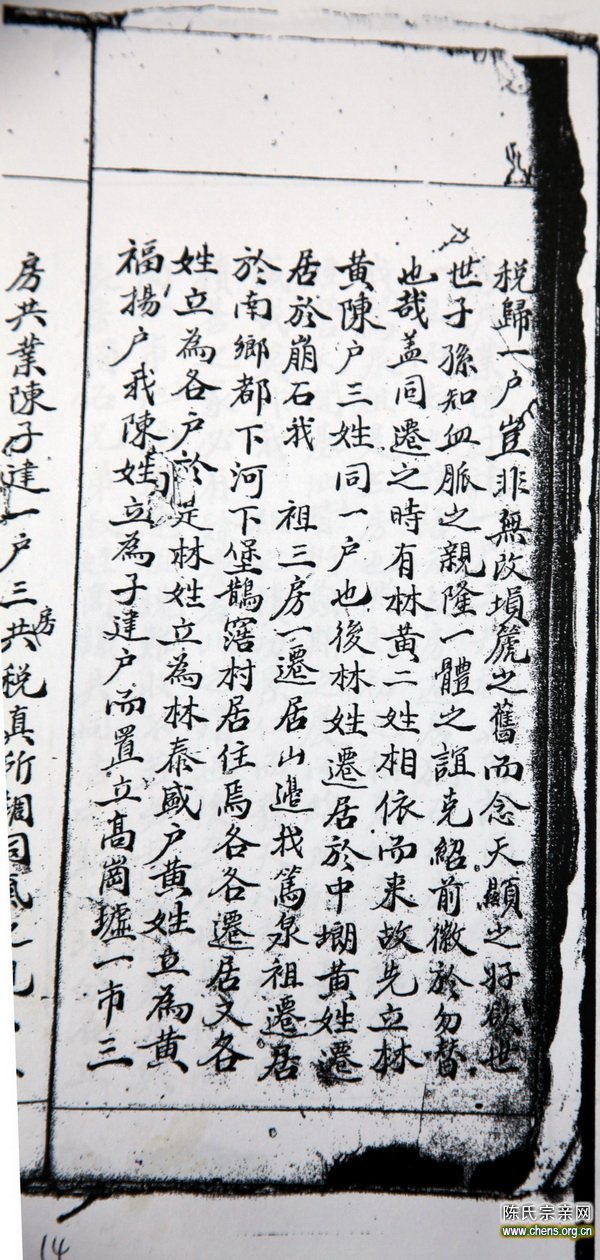 税歸一户豈非無改塤篪之舊而念天顯之好欲世
世子孫知血脈之親隆一體之誼克紹前徽於勿替
也哉盖同遷之時有林黄二姓相依而来故先立林
黄陳户三姓同一户也後林姓遷居於中塱黄姓遷
居於崩石我 祖三房一遷居山邉我篤泉祖遷居
於南鄉都下河下堡鵲窿村居住焉各各遷居又各
姓立為各户於是林姓立為林泰盛户黄姓立為黄
福揚户我陳姓立為子建户而置立高崗墟一市三
房共業陳子建一户三房共税真所謂同氣之
14
陈氏宗亲网
www.chens.org.cn